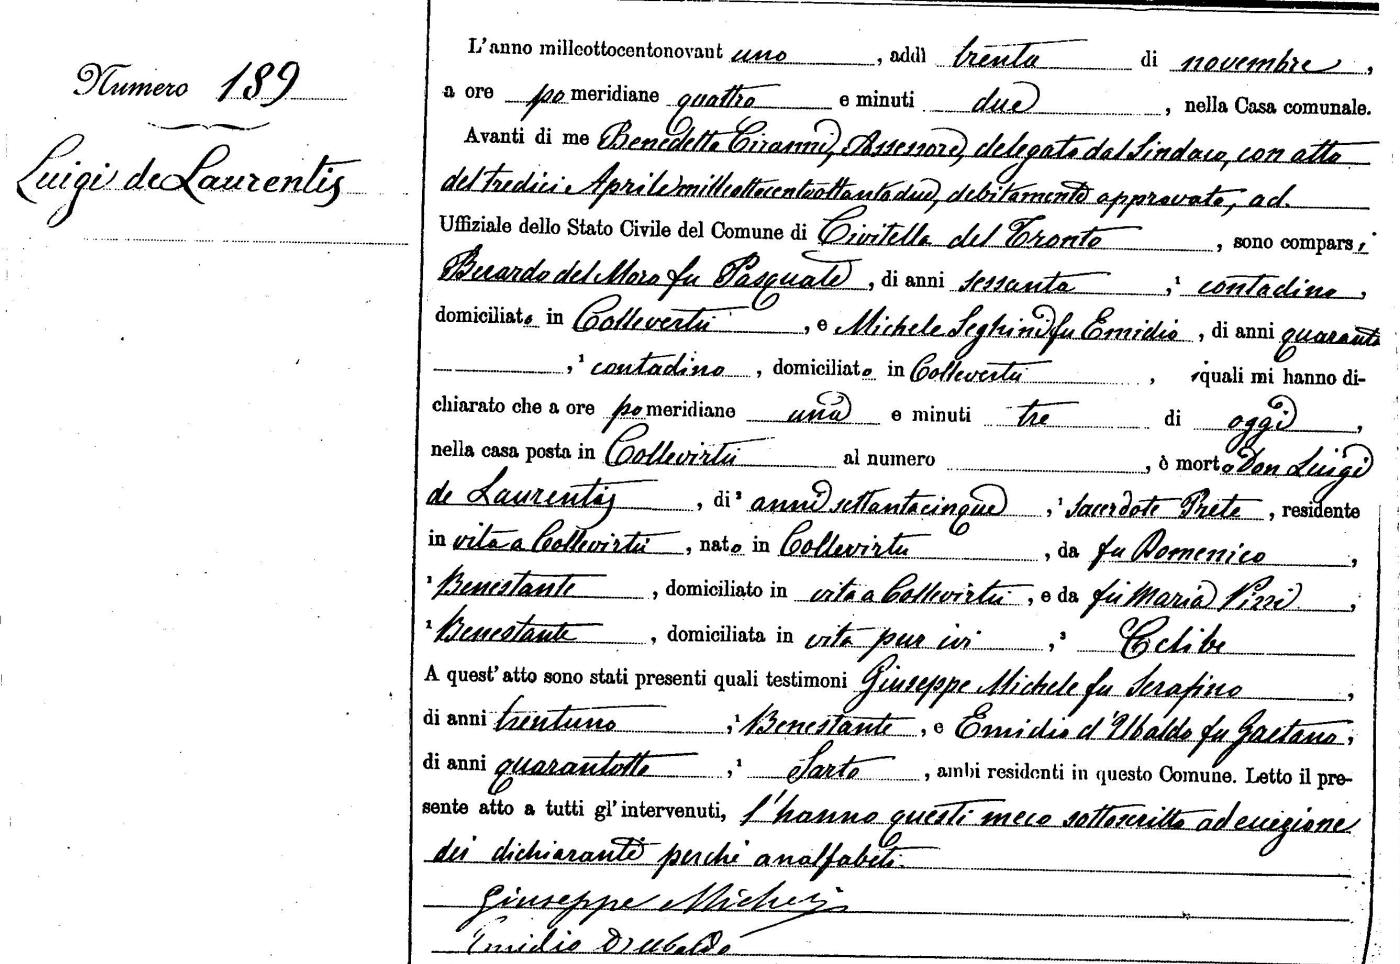 Numero 189
Luigi de Laurentis
L'anno millcottocentonovant uno, addì trenta di novembre,
a ore pomeridiane quattro e minuti due, nella Casa comunale.
Avanti di me Benedetto Ciranni, Assessore, delegato dal Sindaco, con atto
del tredici Aprile millottocentoottantadue, debitamente approvato, ad.
Uffiziale dello Stato Civile del Comune di Civitella del Tronto, sono comparsi
Berardo del Moro fu Pasquale, di anni sessanta, ¹ contadino,
domiciliato in Collevertù, e Michele Seghini fu Emidio, di anni quaranta
, ¹ contadino, domiciliato in Collevertù, i quali mi hanno di-
chiarato che a ore pomeridiane una e minuti tre di oggi,
nella casa posta in Collevirtù al numero , è morto Don Luigi
de Laurentis, di ² anni settantacinque, ¹ Sacerdote Prete, residente
in vita a Collevirtù, nato in Collevirtù, da fu Domenico,
¹ Benestante, domiciliato in vita a Collevirtù, e da fu Maria Pizzi,
¹ Benestante, domiciliata in vita pur ivi, ³ Celibe
A quest' atto sono stati presenti quali testimoni Giuseppe Michele fu Serafino,
di anni trentuno, ¹ Benestante, e Emidio d'Ubaldo fu Gaetano,
di anni quarantotto, ¹ Sarto, ambi residenti in questo Comune. Letto il pre-
sente atto a tutti gl' intervenuti, l'hanno questi meco sottoscritto ad eccezione
dei dichiaranti perchè analfabeti.
Giuseppe Michei
Emidio D'Ubaldo